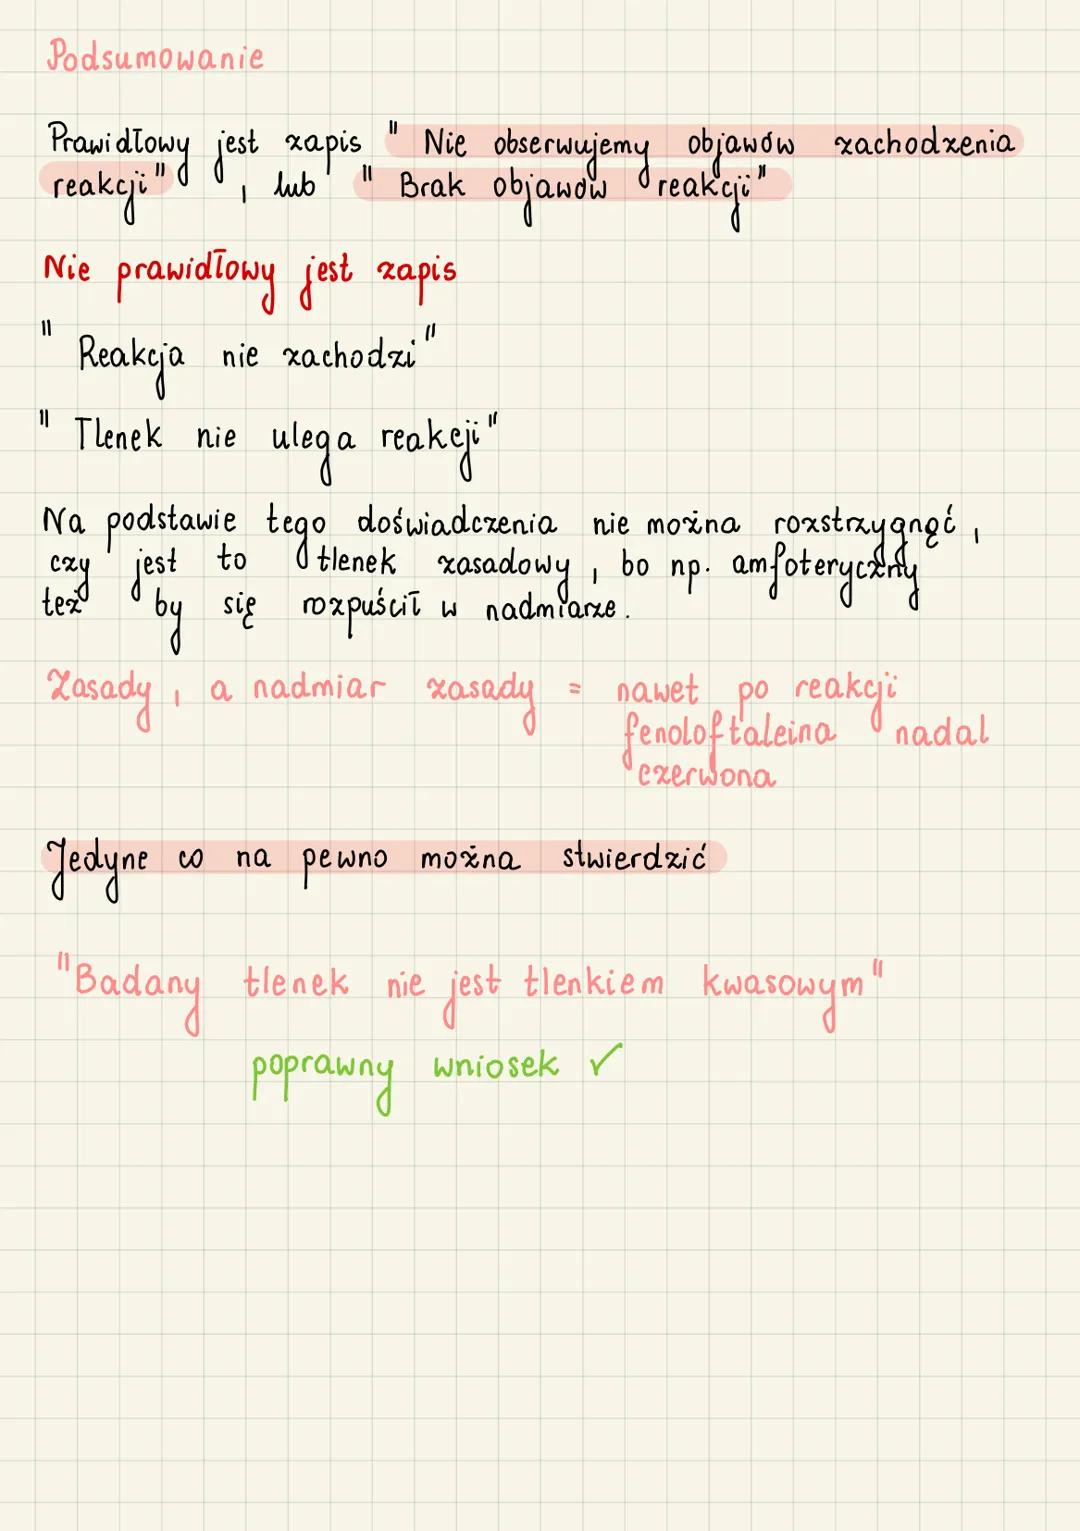 Podsumowanie
Prawidłowy jest zapis " Nie obserwujemy objawów zachodzenia
reakcji", lub " Brak objawów reakcji"
Nie prawidłowy jest zapis
" Reakcja nie zachodzi"
" Tlenek nie ulega reakcji"
Na podstawie tego doświadczenia nie można rozstrzygnąć,
czy jest to tlenek zasadowy, bo np. amfoteryczny
też by się rozpuścił w nadmiarze.
Zasady, a nadmiar zasady = nawet po reakcji
fenoloftaleina nadal
czerwona
Jedyne co na pewno można stwierdzić
"Badany tlenek nie jest tlenkiem kwasowym"
poprawny wniosek ✓